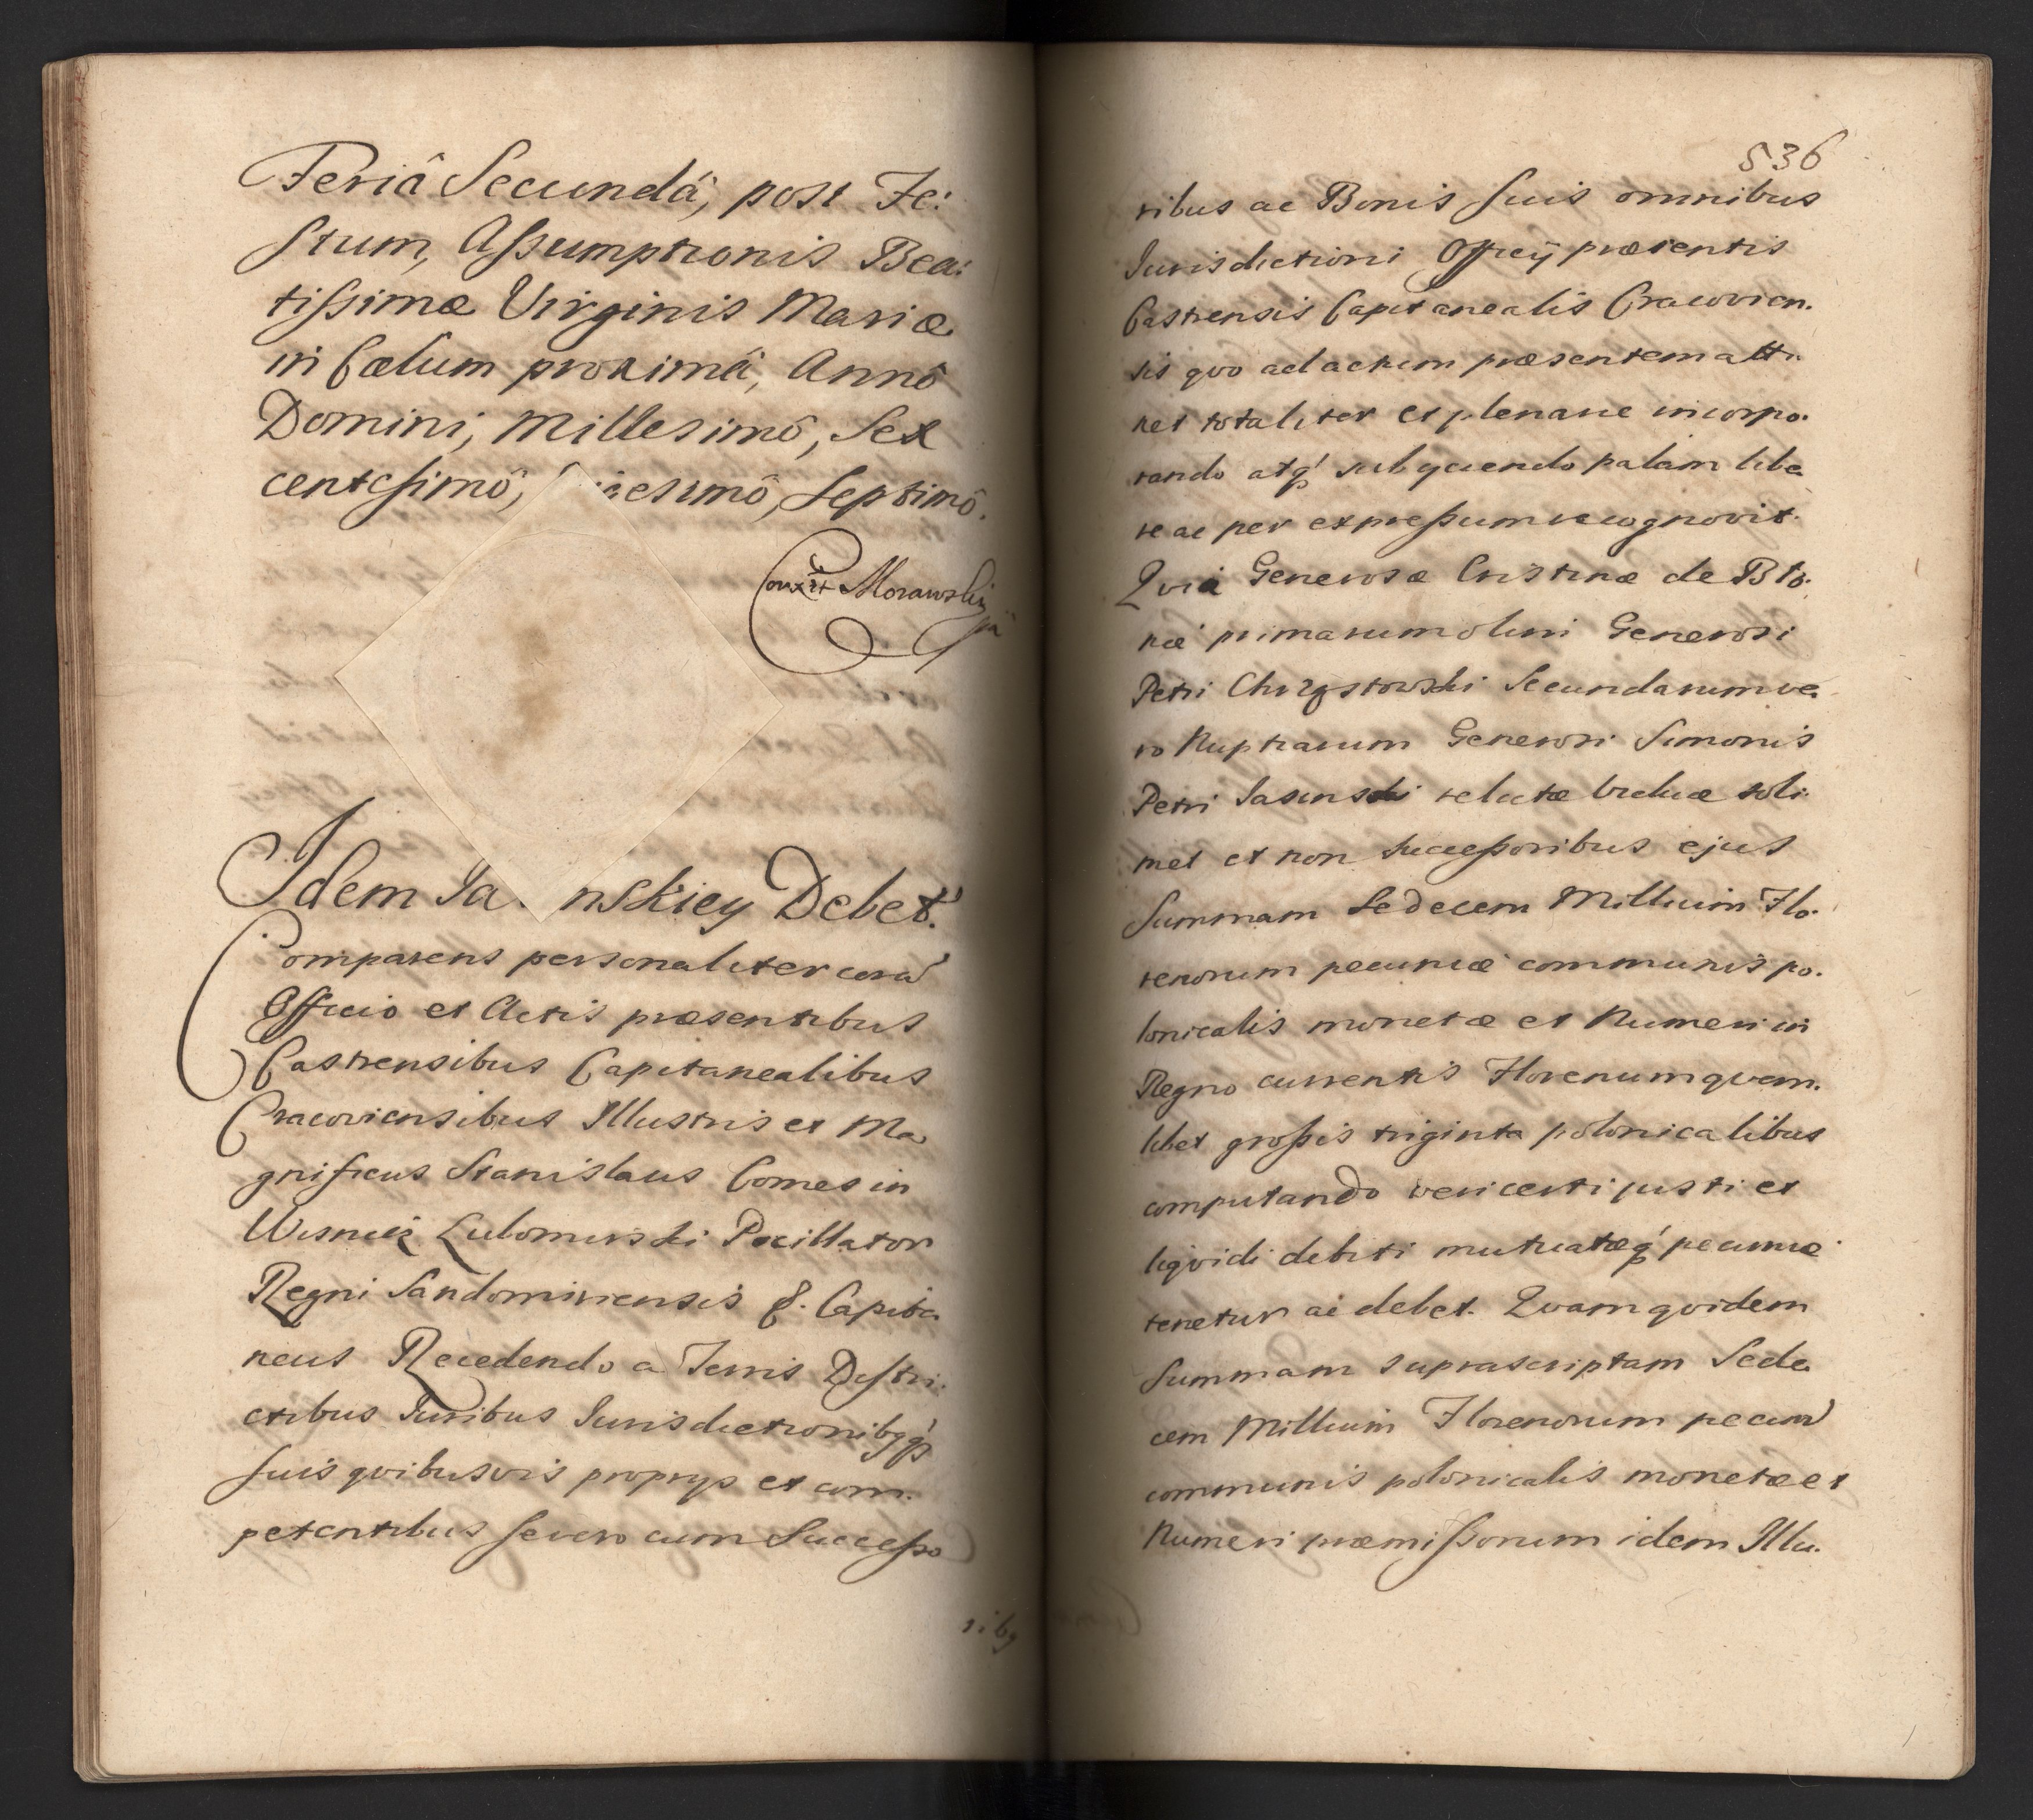 Feriâ Secundâ, post Fe:
stum, Assumptionis Bea:
tissimæ Virginis Mariæ
in Cælum proximâ, Annô
Domini, Millesimô, Sex
centesimô, iesimô, Septimô.
Conxit Morawski
Idem Ja nskiey Debet.
Comparens personaliter corã
Officio et Actis præsentibus
Castrensibus Capitanealibus
Cracoviensibus Illustris et Ma
gnificus Stanislaus Comes in
Wisnicz Lubomirski Pocillator
Regni Sandomiriensis &. Capita
neus Recedendo a Terris Distri:
ctibus Juribus Jurisdictionibq́
suis qvibusvis proprijs et com:
petentibus severo cum Successo
ribq
536
ribus ac Bonis suis omnibus
Jurisdictioni Officij præsentis
Castrensis Capitanealis Cracovien:
sis qvo ad actum præsentem atti:
net totaliter et plenarie incorpo:
rando atq́ subyciendo palam libe
re ac per expressum recognovit.
Qvia Generosæ Cristinæ de Bło:
nie primarum olim Generosi
Petri Chrząstowski Secundarum ve
ro Nuptiarum Generosi Simonis
Petri Jasinski relictæ viduæ soli
met et non successoribus ejus
Summam Sedecem Millium Flo:
renorum pecuniæ communis po:
lonicalis monetæ et Numeri in
Regno currentis Florenum qvem:
libet grossis triginta polonicalibus
computando veri certi justi et
liqvidi debiti mutuatæq́ pecuniæ
tenetur ac debet. Qvam qvidem
Summam suprascriptam Sede
cem Millium Florenorum pecun̄
communis polonicalis monetæ et
Numeri præmissorum idem Illu: